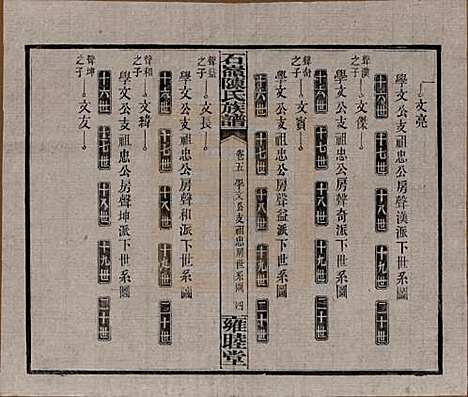 文亮
學文公支祖忠公房聲漢派下世系圖
十六世 十七世 十八世 十九世 二十世
聲漢之子 文傑
學文公支祖忠公房聲奇派下世系圖
十六世 十七世 十八世 十九世 二十世
聲奇之子 文賓
學文公支祖忠公房聲益派下世系圖
十六世 十七世 十八世 十九世 二十世
石 陳氏族譜 卷五 學文公支祖忠房世系圖 四 雍睦堂
聲益之子 文長
學文公支祖忠公房聲和派下世系圖
十六世 十七世 十八世 十九世 二十世
聲和之子 文綺
學文公支祖忠公房聲坤派下世系圖
十六世 十七世 十八世 十九世 二十世
聲坤之子 文友